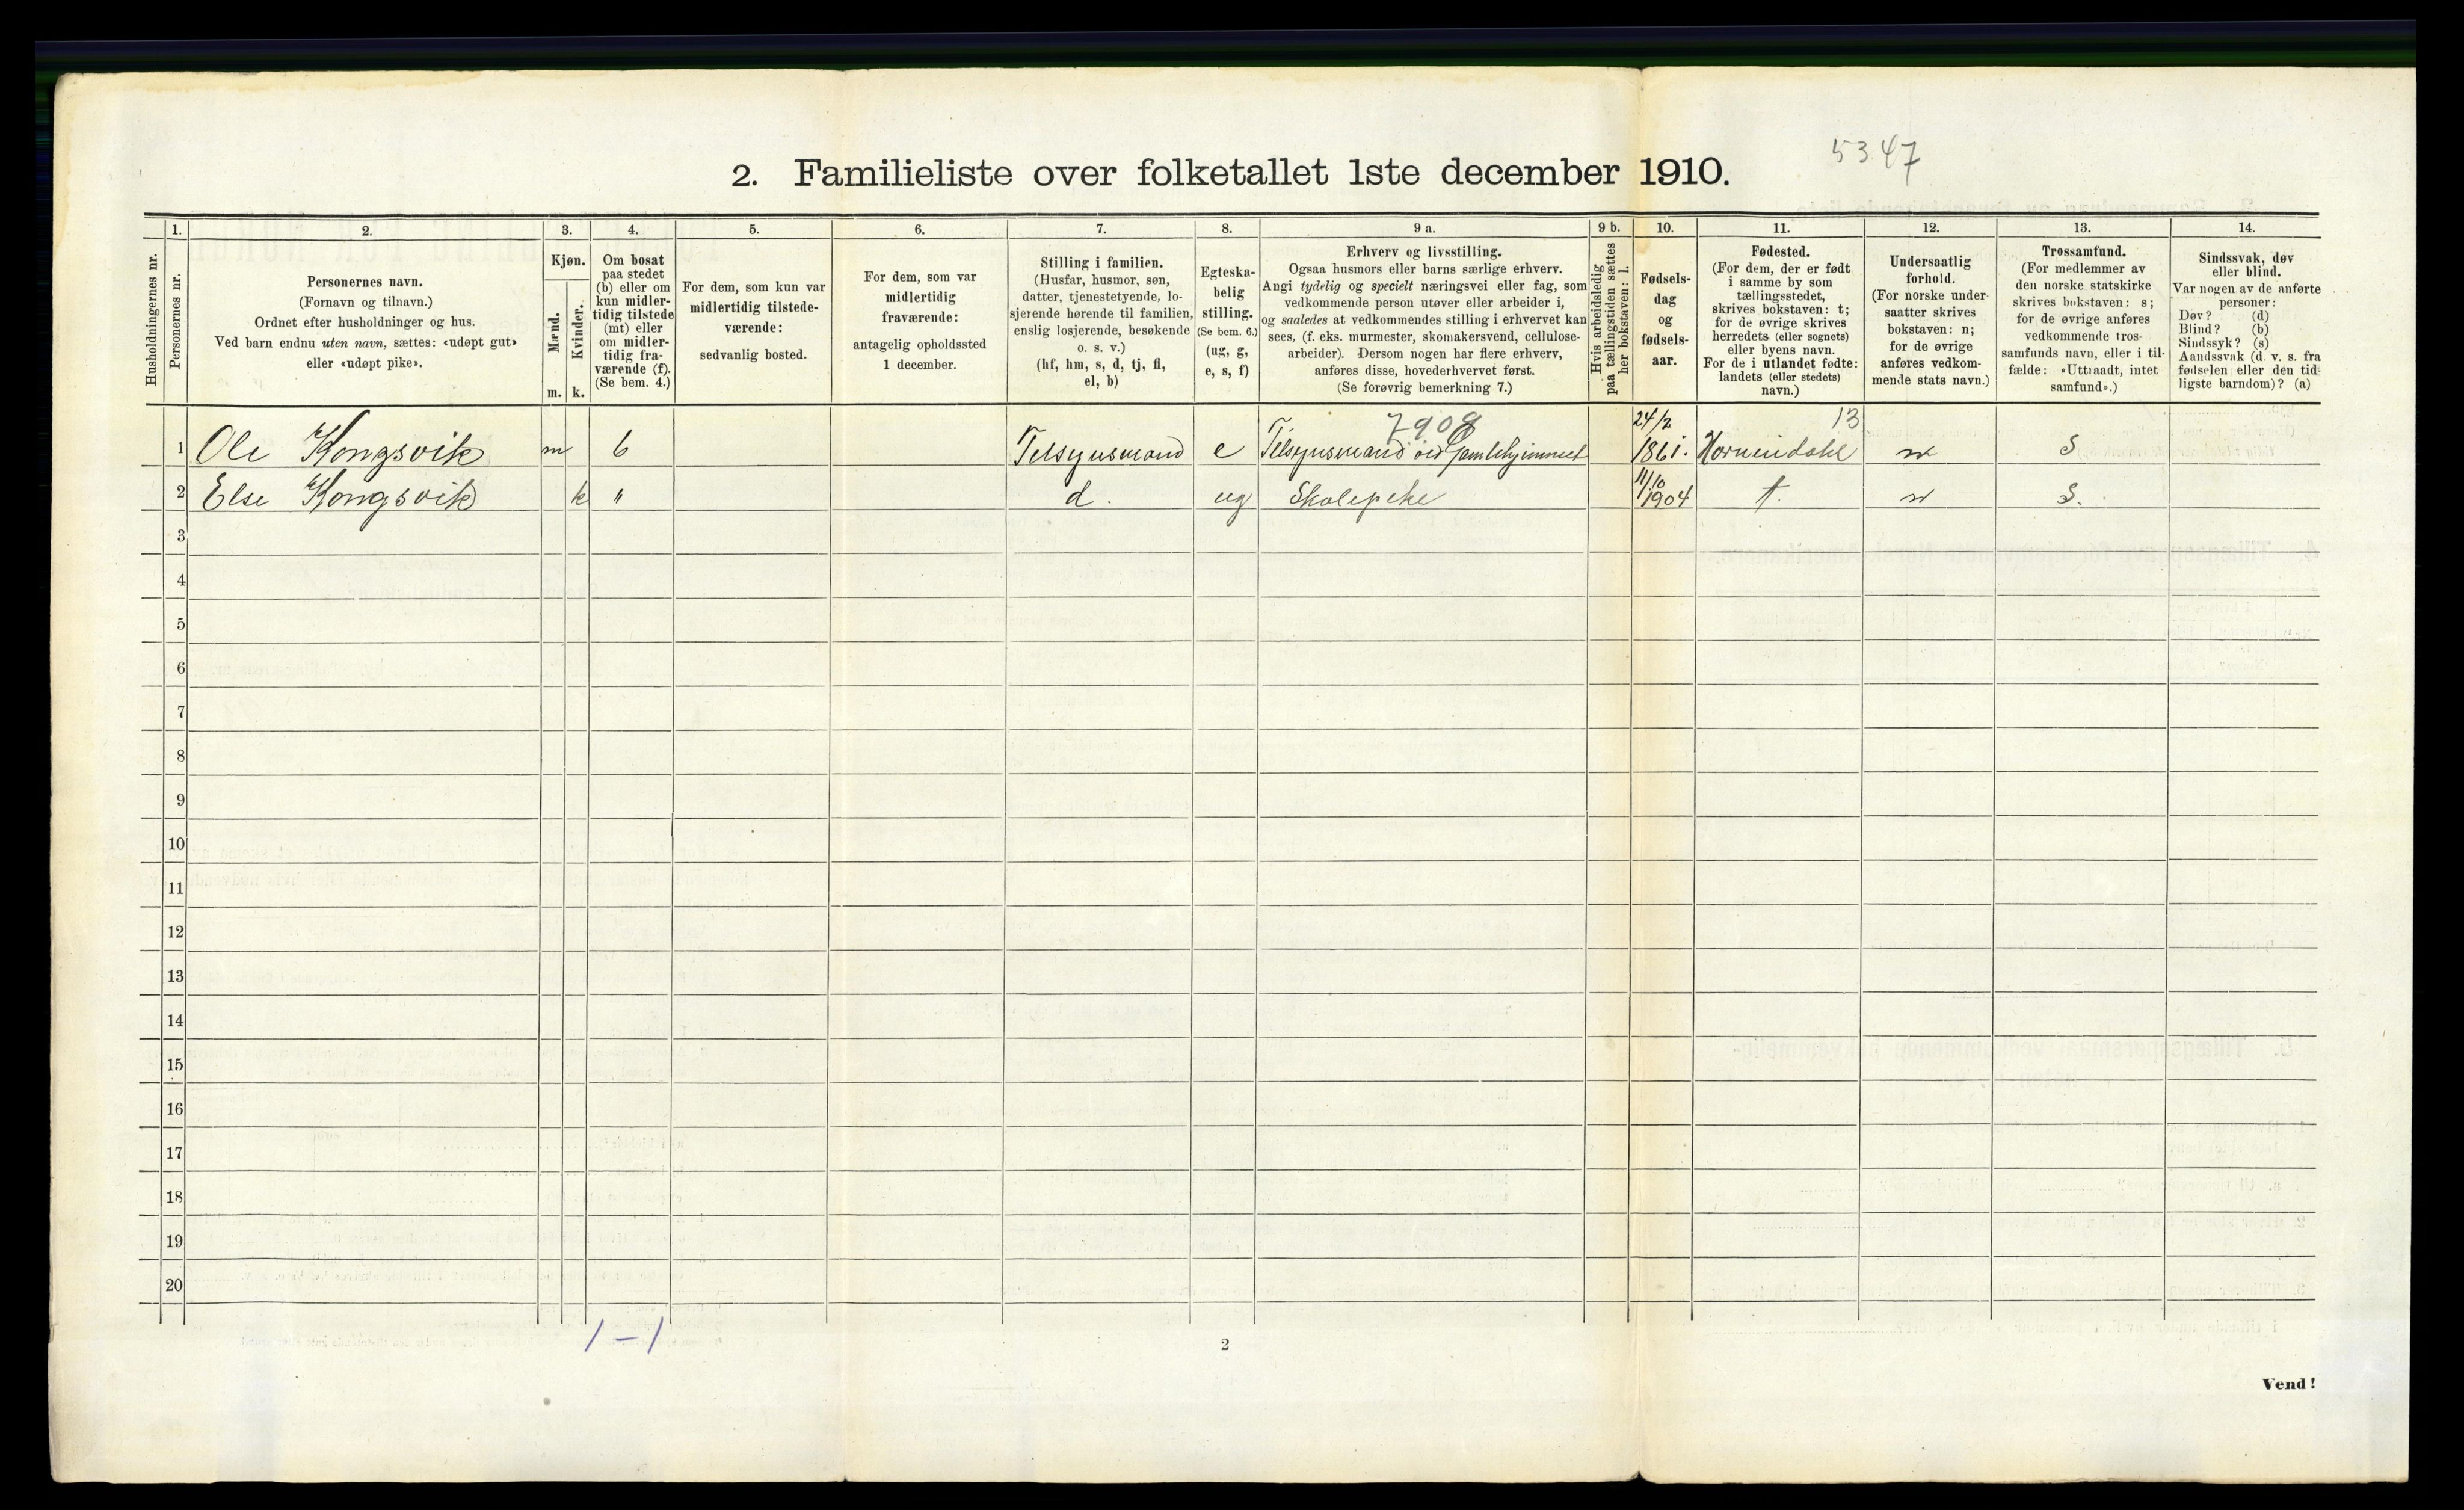 5347
2. Familieliste over folketallet 1ste december 1910.
Husholdningernes nr.
1.
Personernes nr.
2.
Personernes navn.
(Fornavn og tilnavn.)
Ordnet efter husholdninger og hus.
Ved barn endnu uten navn, sættes: «udøpt gut»
eller «udøpt pike».
3.
Kjøn.
Mænd.
m.
Kvinder.
k.
4.
Om bosat
paa stedet
(b) eller om
kun midler-
tidig tilstede
(mt) eller
om midler-
tidig fra-
værende (f).
(Se bem. 4.)
5.
For dem, som kun var
midlertidig tilstede-
værende:
sedvanlig bosted.
6.
For dem, som var
midlertidig
fraværende:
antagelig opholdssted
1 december.
7.
Stilling i familien.
(Husfar, husmor, søn,
datter, tjenestetyende, lo-
sjerende hørende til familien,
enslig losjerende, besøkende
o. s. v.)
(hf, hm, s, d, tj, fl,
el, b)
8.
Egteska-
belig
stilling.
(Se bem. 6.)
(ug, g,
e, s, f)
9 a.
Erhverv og livsstilling.
Ogsaa husmors eller barns særlige erhverv.
Angi tydelig og specielt næringsvei eller fag, som
vedkommende person utøver eller arbeider i,
og saaledes at vedkommendes stilling i erhvervet kan
sees, (f. eks. murmester, skomakersvend, cellulose-
arbeider). Dersom nogen har flere erhverv,
anføres disse, hovederhvervet først.
(Se forøvrig bemerkning 7.)
9 b.
Hvis arbeidsledig
paa tællingstiden sættes
her bokstaven: l.
10.
Fødsels-
dag
og
fødsels-
aar.
11.
Fødested.
(For dem, der er født
i samme by som
tællingsstedet,
skrives bokstaven: t;
for de øvrige skrives
herredets (eller sognets)
eller byens navn.
For de i utlandet fødte:
landets (eller stedets)
navn.)
12.
Undersaatlig
forhold.
(For norske under-
saatter skrives
bokstaven: n;
for de øvrige
anføres vedkom-
mende stats navn.)
13.
Trossamfund.
(For medlemmer av
den norske statskirke
skrives bokstaven: s;
for de øvrige anføres
vedkommende tros-
samfunds navn, eller i til-
fælde: «Uttraadt, intet
samfund».)
14.
Sindssvak, døv
eller blind.
Var nogen av de anførte
personer:
Døv? (d)
Blind? (b)
Sindssyk? (s)
Aandssvak (d. v. s. fra
fødselen eller den tid-
ligste barndom)? (a)
7908 24/2 13
1 Ole Kongsvik m b Tilsynsmand e Tilsynsmand ved Gamlehjemmet 1861. Hornindahl n S
2 Else Kongsvik k " d. ug Skolepike 11/10 1904 t. n S.
3
4
5
6
7
8
9
10
11
12
13
14
15
16
17
18
19
20
1 – 1
2
Vend!